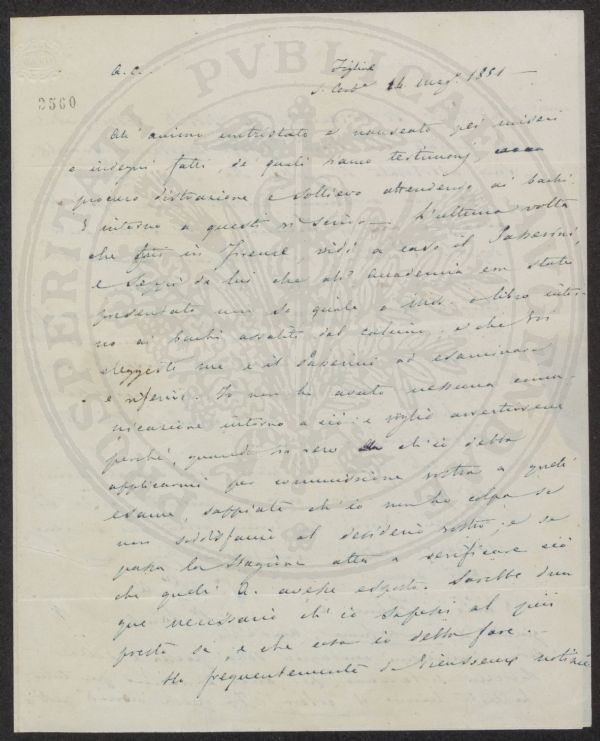 PROSPERITATI PUBLICAE
3560
A. C.
Figline
S. Cerb.e 24 Mag.o 1851
All' animo contristato e nauseato pei miseri
e indegni fatti, de' quali siamo testimonj,
procuro distrazione e sollievo attendendo ai bachi.
E intorno a questi vi scrivo. L'ultima volta
che fui in Firenze vidi a caso il
e seppi da lui che all' Accademia era stato
presentato non so quale o libro intor-
no ai bachi assaliti dal calcino, e che Voi
eleggeste me e il ad esaminare
e riferire. Io non ho avuto nessuna comu-
nicazione intorno a ciò: e voglio avvertirvene
perché, quando sia vero ch'io debba
applicarmi per commissione vostra a quell'
esame, sappiate ch'io non ho colpa se
non soddisfaccio al desiderio vostro; e se
passa la stagione atta a verificare ciò
che quell' A. avesse esposto. Sarebbe dun
que necessario ch'io sapessi al più
presto se, e che cosa io debba fare.
Ho frequentemente da Vieusseux notizie